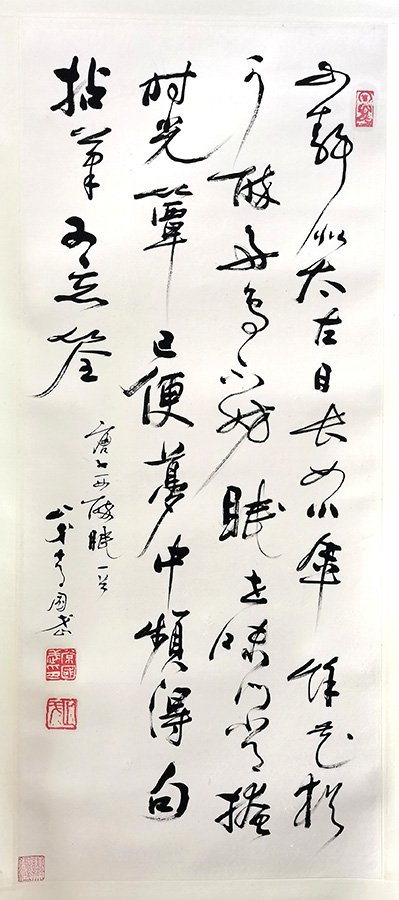 山静似太古日长如小年馀花猶
可醉好鸟不妨眠世味门常掩
时光簟已便夢中頻得句
拈筆又忘筌
唐子西醉眠一首